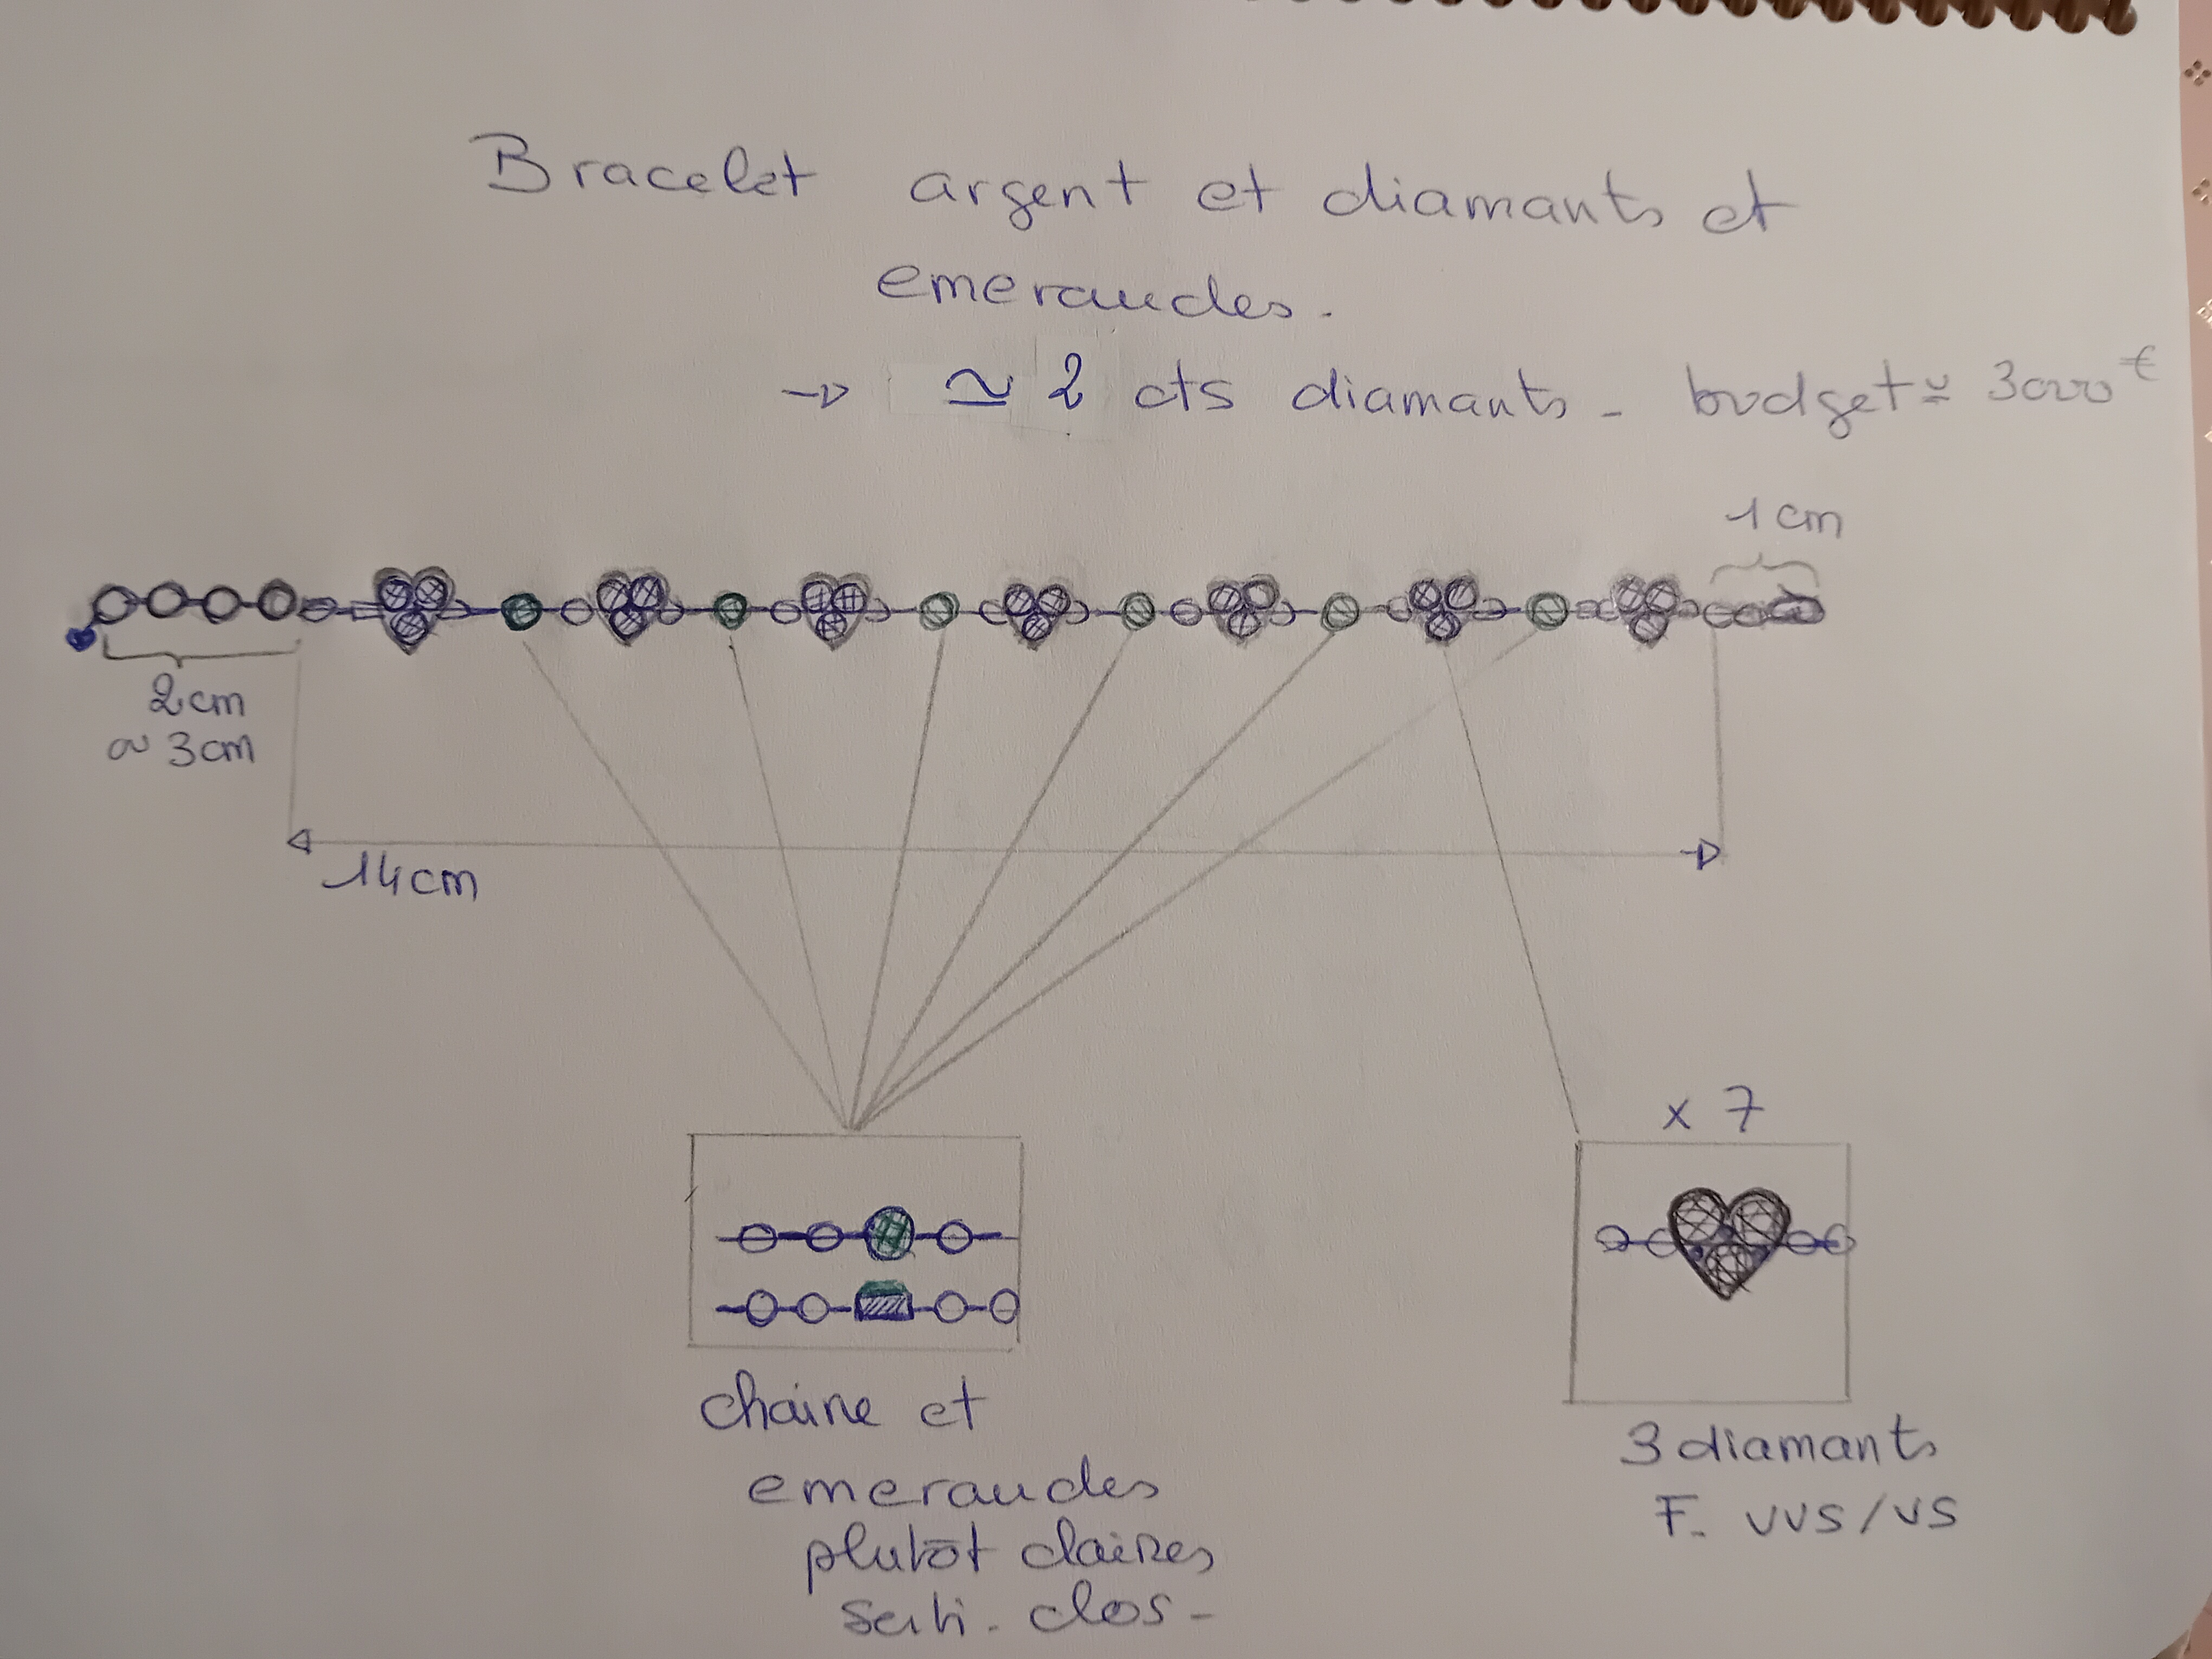 Bracelet argent et diamants et
emeraudes.
→ ≃ 2 cts diamants - budget ≃ 3000€
1 cm
2 cm
~ 3 cm
14 cm
x 7
chaine et
emeraudes
plutôt claires
serti. clos -
3 diamants
F. VVS/VS